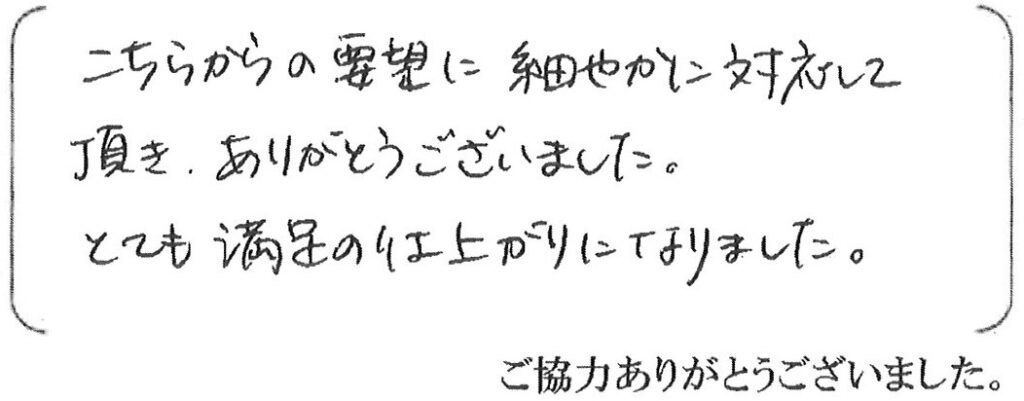 こちらからの要望に細やかに対応して
頂き、ありがとうございました。
とても満足の仕上がりになりました。
ご協力ありがとうございました。